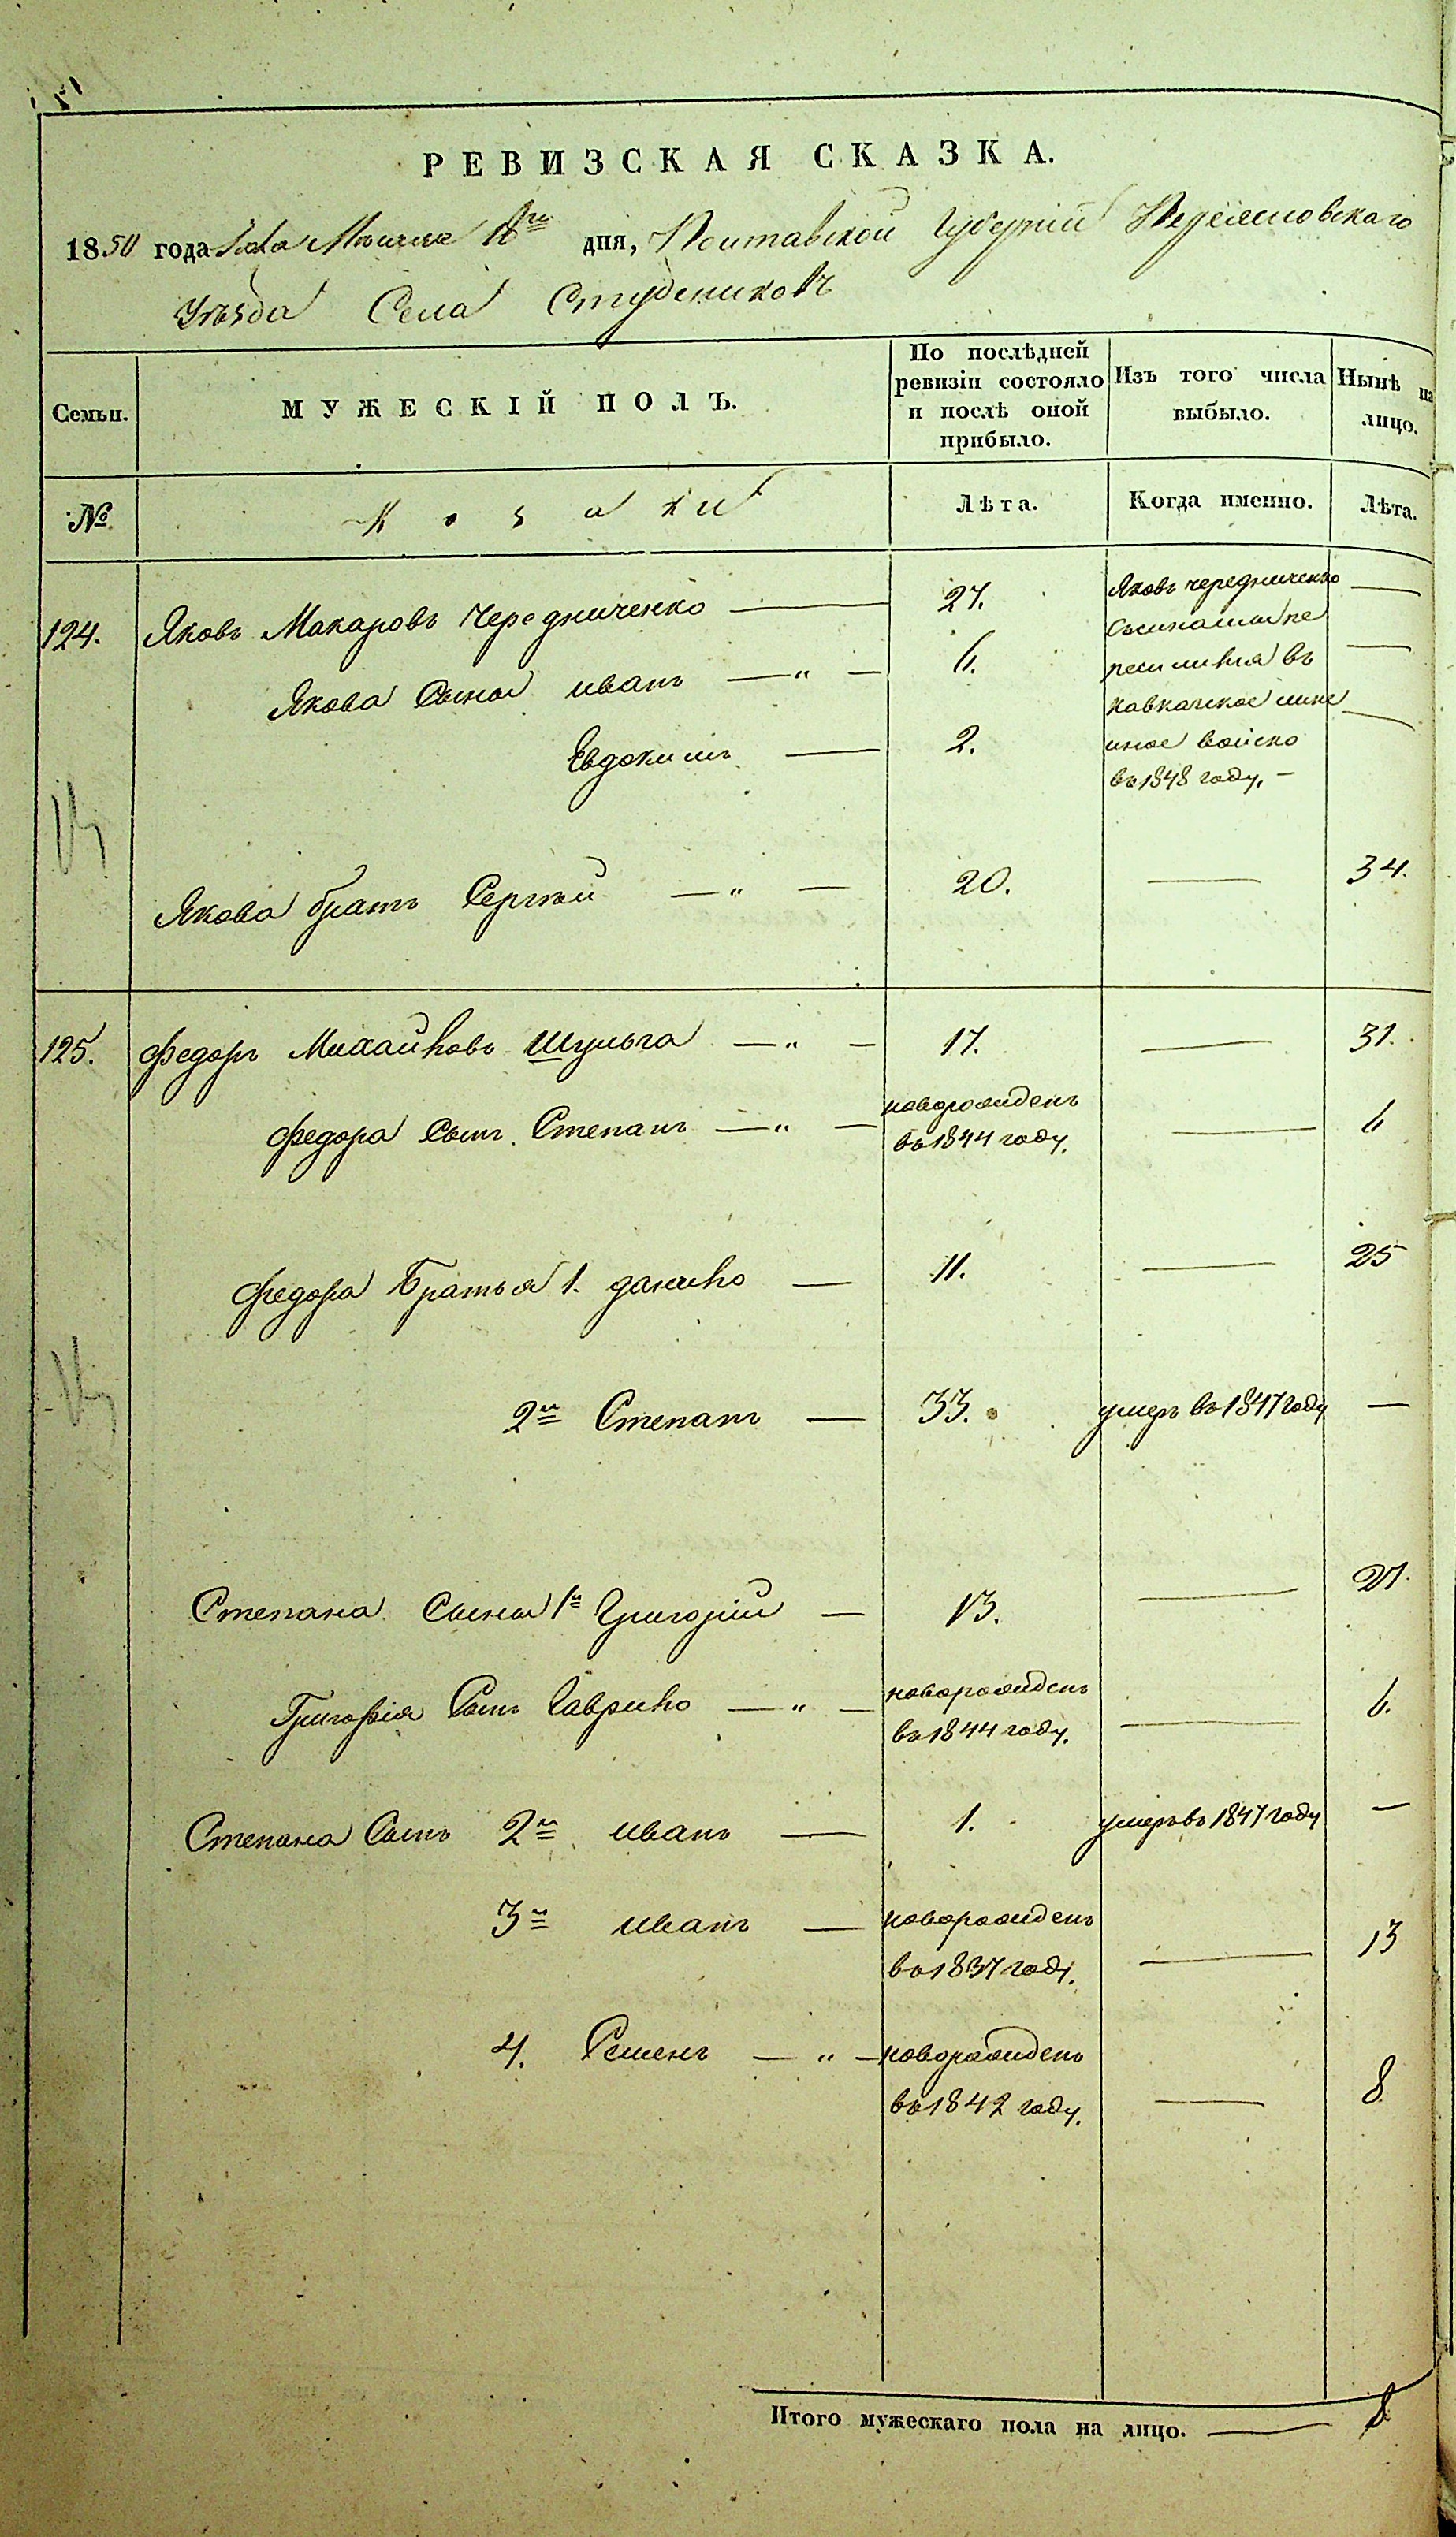 РЕВИЗСКАЯ СКАЗКА.
1850 года Мѣсяца 18го дня, Полтавской Губерніи Переяславскаго
Уѣзда Села Студениковъ
Семьи.
МУЖЕСКІЙ ПОЛЪ.
По послѣдней ревизіи состояло и послѣ оной прибыло.
Изъ того числа выбыло.
Нынѣ на лицо.
№
Козаки
Лѣта.
Когда именно.
Лѣта.
124. Яковъ Макаровъ Чередниченко — 27. —
Якова Сыны иванъ —„— 6. —
Евдокимъ — 2. —
Яковъ чередниченко
Сысинамы пе
реселился въ
Кавказское лине
иное войско
въ 1848 году. —
Якова братъ Сергѣй —„— 20. — 34.
125. Федоръ Михайловъ Шульга —„— 17. — 31.
Федора Сынъ Степанъ —„— новорожденъ
въ 1844 году. — 6
Федора Братья 1. данило — 11. — 25
2й Степанъ — 33. умеръ въ 1847 году —
Степана Сыны 1й Григорій — 13. — 27.
Григорія Сынъ Гаврило —„— новорожденъ
въ 1844 году. — 6.
Степана Сынъ 2й иванъ — 1. умеръ въ 1847 году —
3й иванъ — новорожденъ
въ 1837 году. — 13
4. Семенъ —„— новорожденъ
въ 1842 году. — 8
Итого мужескаго пола на лицо. — 8